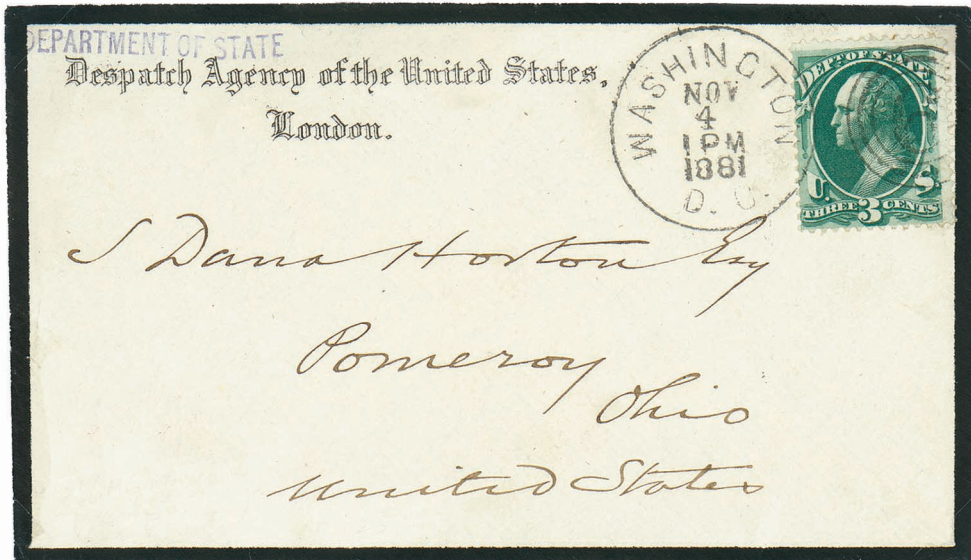 DEPARTMENT OF STATE
Despatch Agency of the United States,
London.
WASHINGTON
NOV
4
1 PM
1881
D. C.
DEP'T OF STATE
U. S.
THREE 3 CENTS
S Dana Horton Esq
Pomeroy
Ohio
United States